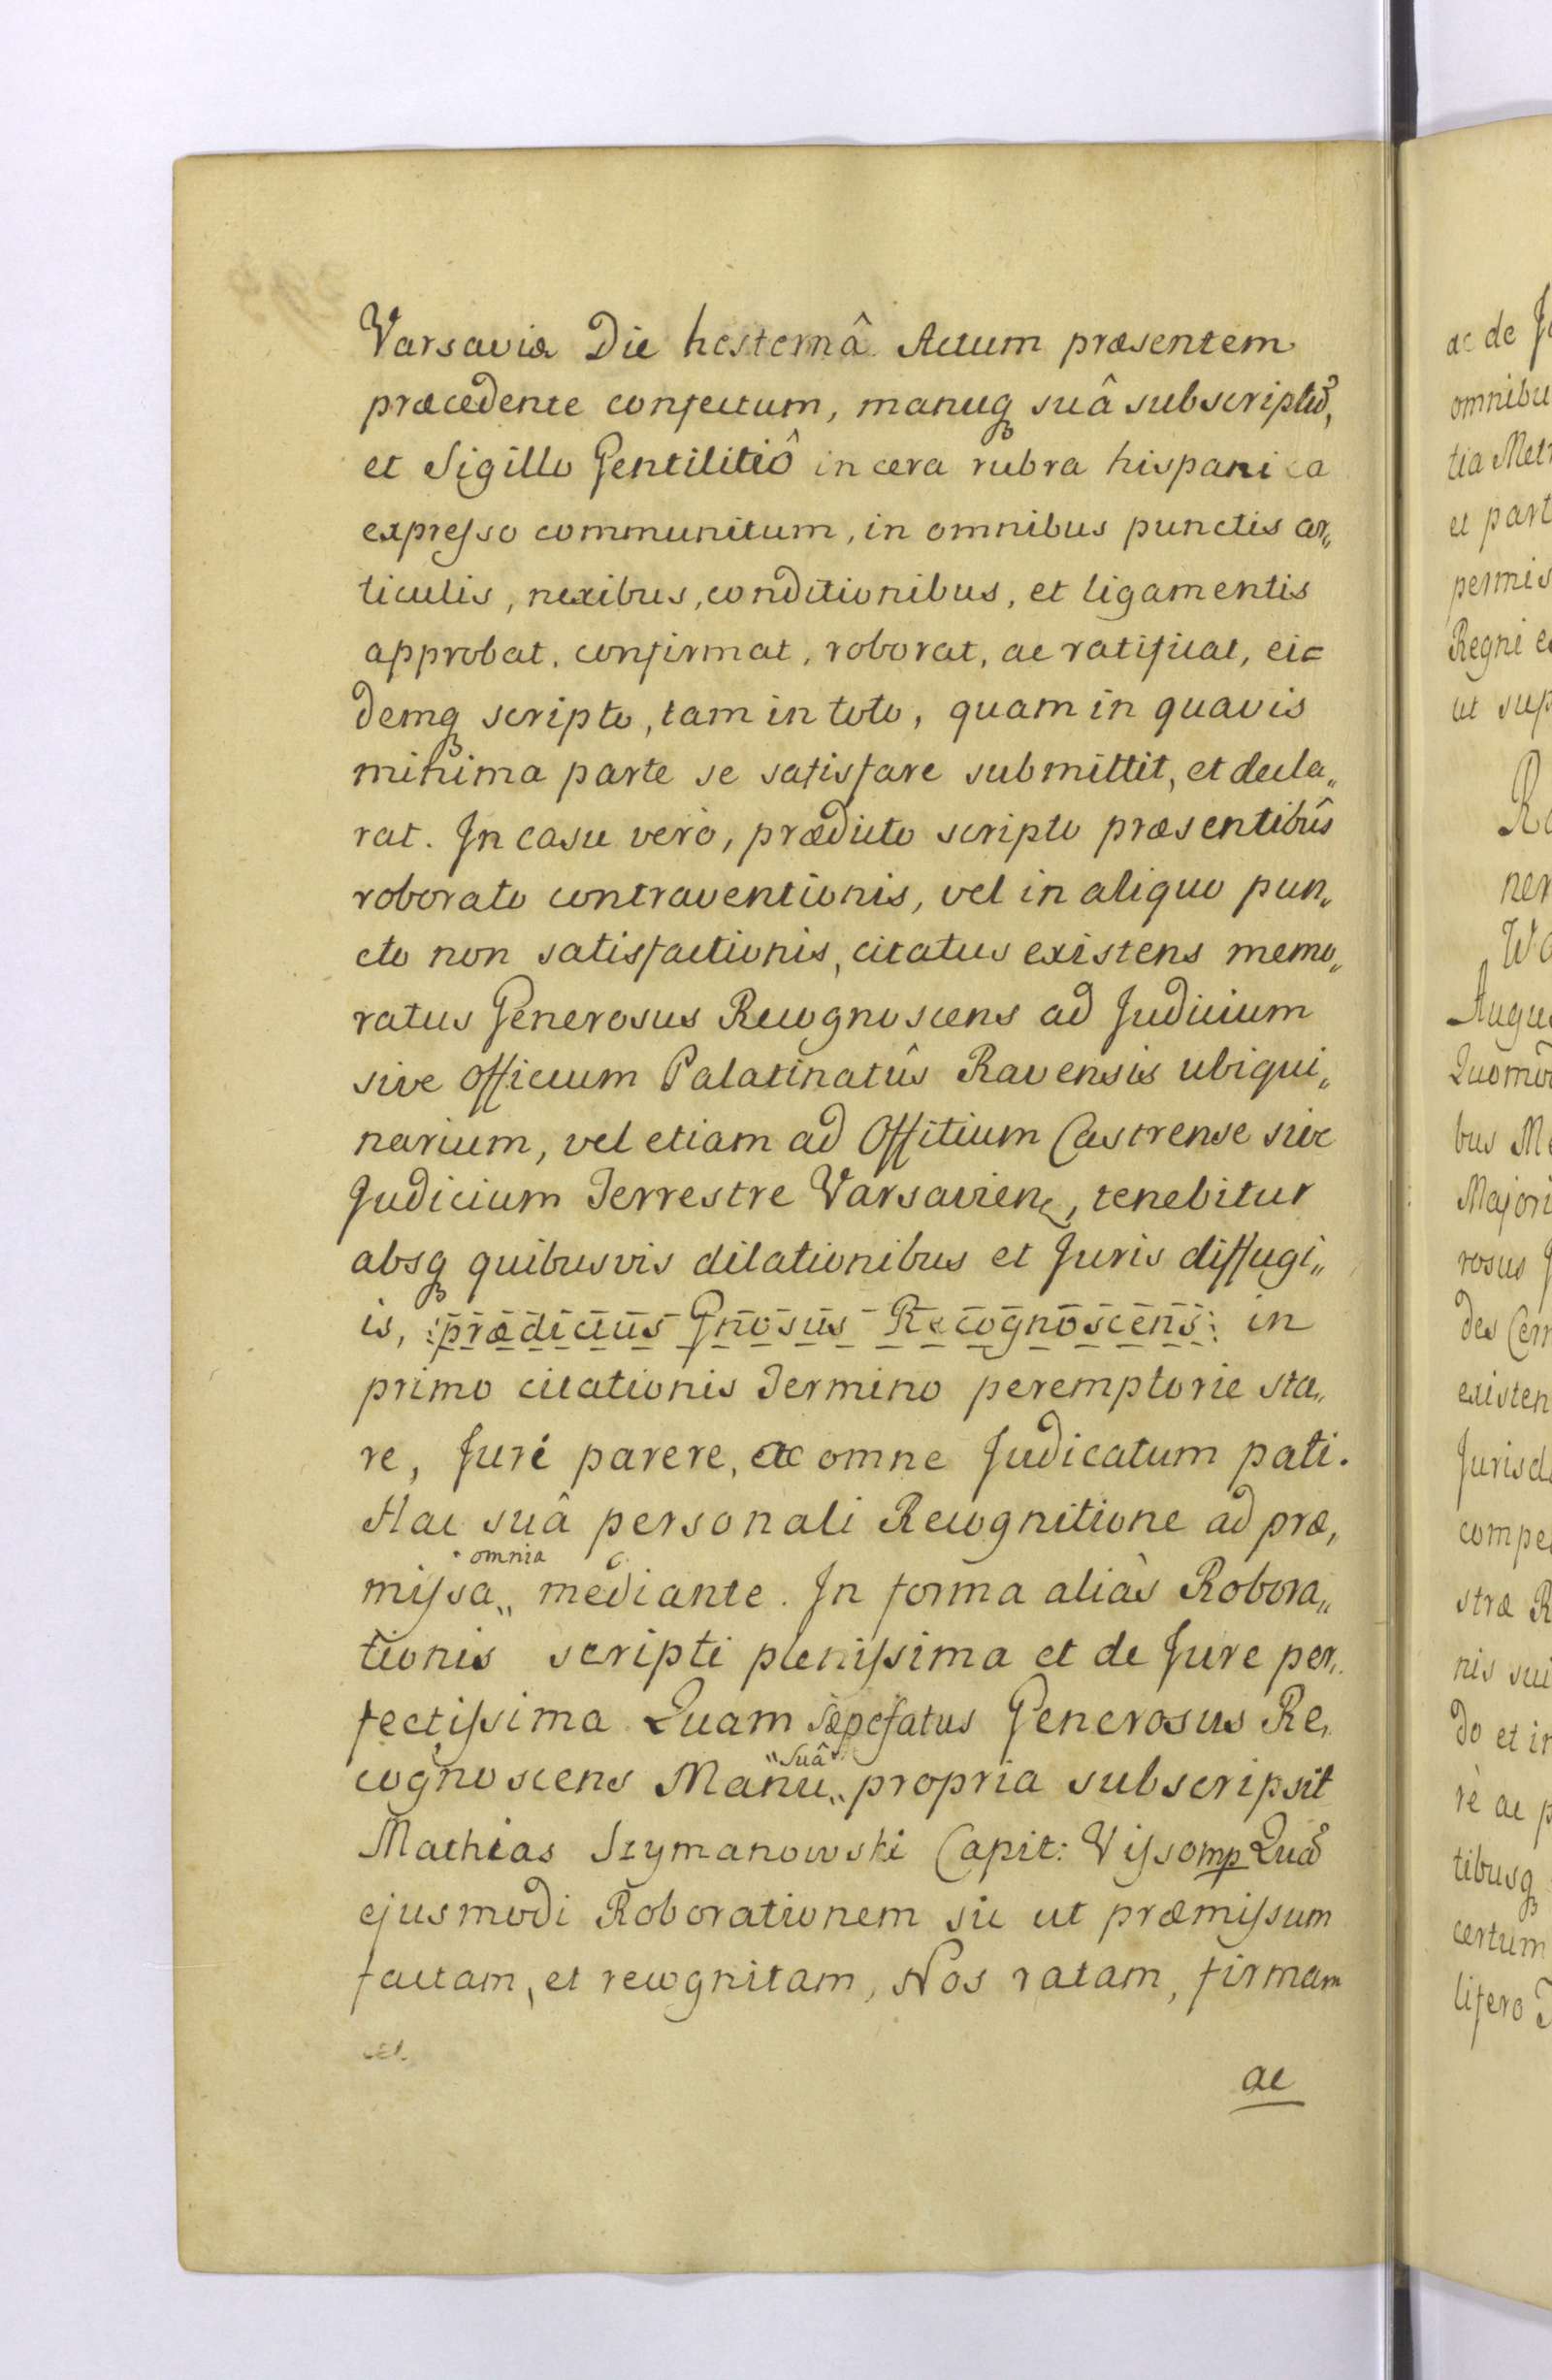 Varsaviæ Die hesternâ Actum præsentem
præcedente confectum, manuq suâ subscriptũ,
et Sigillo Gentilitiô in cera rubra hispanica
expresso communitum, in omnibus punctis ar„
ticulis, nexibus, conditionibus, et ligamentis
approbat, confirmat, roborat, ac ratificat, ei=
demq scripto, tam in toto, quam in quavis
minima parte se satisfare submittit, et decla„
rat. In casu verò, prædicto scripto præsentibûs
roborato contraventionis, vel in aliquo pun„
cto non satisfactionis, citatus existens memo„
ratus Generosus Recognoscens ad Judicium
sive Officium Palatinatûs Ravensis ubiqui„
narium, vel etiam ad Offitium Castrense sive
Judicium Terrestre Varsavien, tenebitur
absq quibusvis dilationibus et Juris diffugi„
is, :prædictus Gnosus Recognoscens: in
primo citationis Termino peremptorie sta„
re, Juri parere, ac omne Judicatum pati.
Hac suâ personali Recognitione ad præ„
omnia
missa„ mediante. In forma aliàs Robora„
tionis scripti plenissima et de Jure per„
fectissima Quam sæpefatus Generosus Re„
suâ
cognoscens Manu„ propria subscripsit
Mathias Szymanowski Capit: Visso mp Quã
ejusmodi Roborationem sic ut præmissum
factam, et recognitam, Nos ratam, firmam
ac
ac de
omnibu
tia Met
et part
permis
Regni
ut sup
ner
Augus
Quomo
bus M
Majori
rosus
des Cer
existen
Jurisd
compe
stræ R
nis sui
do et in
rè ac p
tibusq
certum
lifero